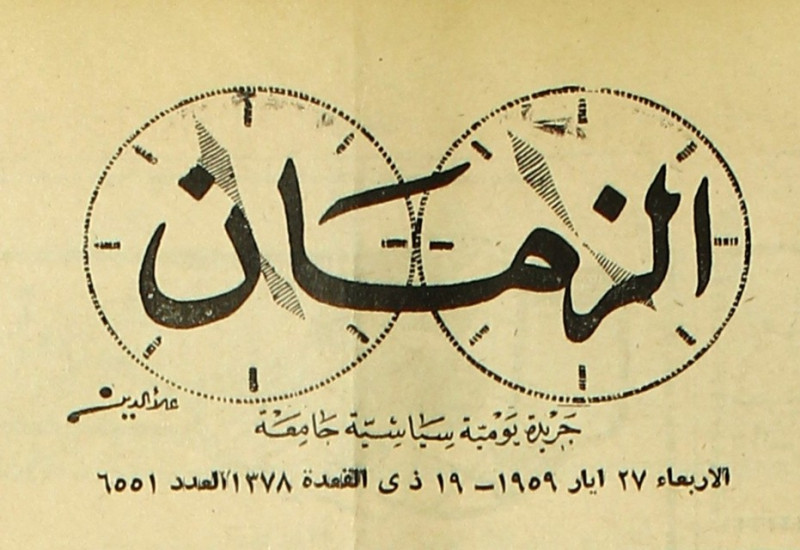 الزمان
علاءالدين
جَرِيدَة يَوْمِيَّة سِيَاسِيَّة جَامِعَة
الاربعاء ٢٧ ايار ١٩٥٩ - ١٩ ذى القعدة ١٣٧٨ العدد ٦٥٥١